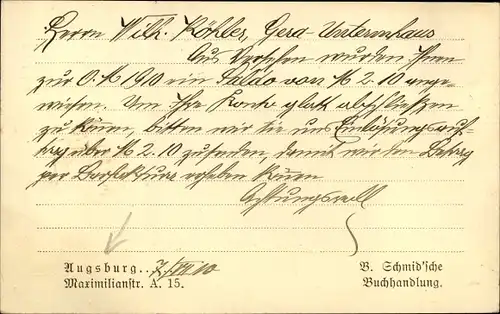 Herrn Wilh. Köhler, Gera-Untermhaus
Aus Versehen wurden Ihnen
zur O. M 1910 ein Saldo von M 2.10 ange-
wiesen. Um Ihr Konto glatt abschließen
zu können, bitten wir Sie uns Einlösungsauf-
trag über M 2.10 zusenden, damit wir den Betrag
per Barfaktur erheben können
Achtungsvoll
Augsburg, 7/VII 10
Maximilianstr. A. 15.
B. Schmid'sche
Buchhandlung.